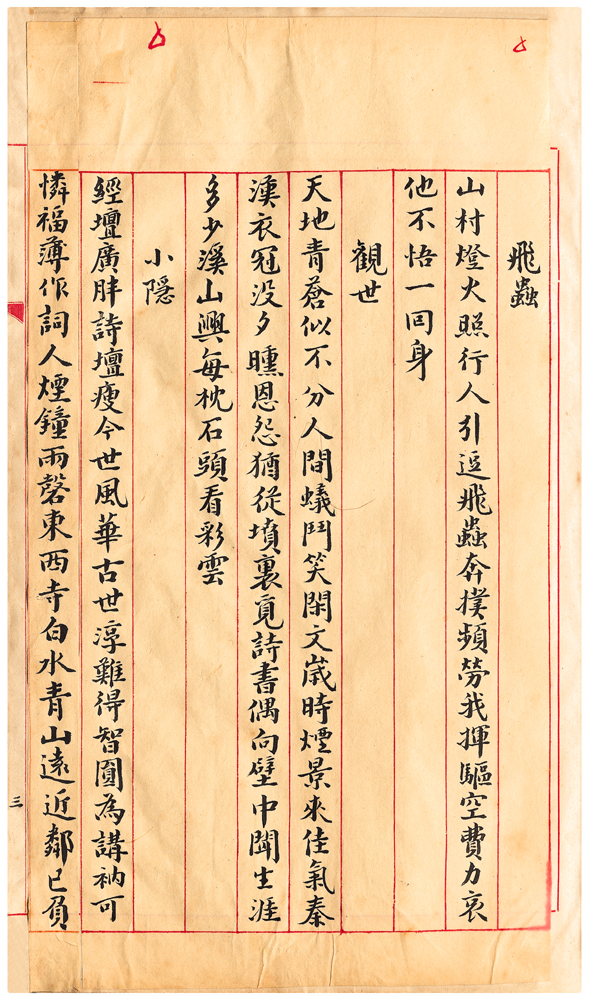 飛蟲
山村燈火照行人引逗飛蟲奔撲頻勞我揮驅空費力哀
他不悟一回身
觀世
天地青蒼似不分人間蟻鬥笑閑文嵗時煙景來佳氣秦
漢衣冠没夕曛恩怨猶從墳裏覓詩書偶向壁中聞生涯
多少溪山興每枕石頭看彩雲
小隱
經壇廣胖詩壇瘦今世風華古世淳難得智圓為講衲可
憐福薄作詞人煙鐘雨磬東西寺白水青山遠近鄰已負
三